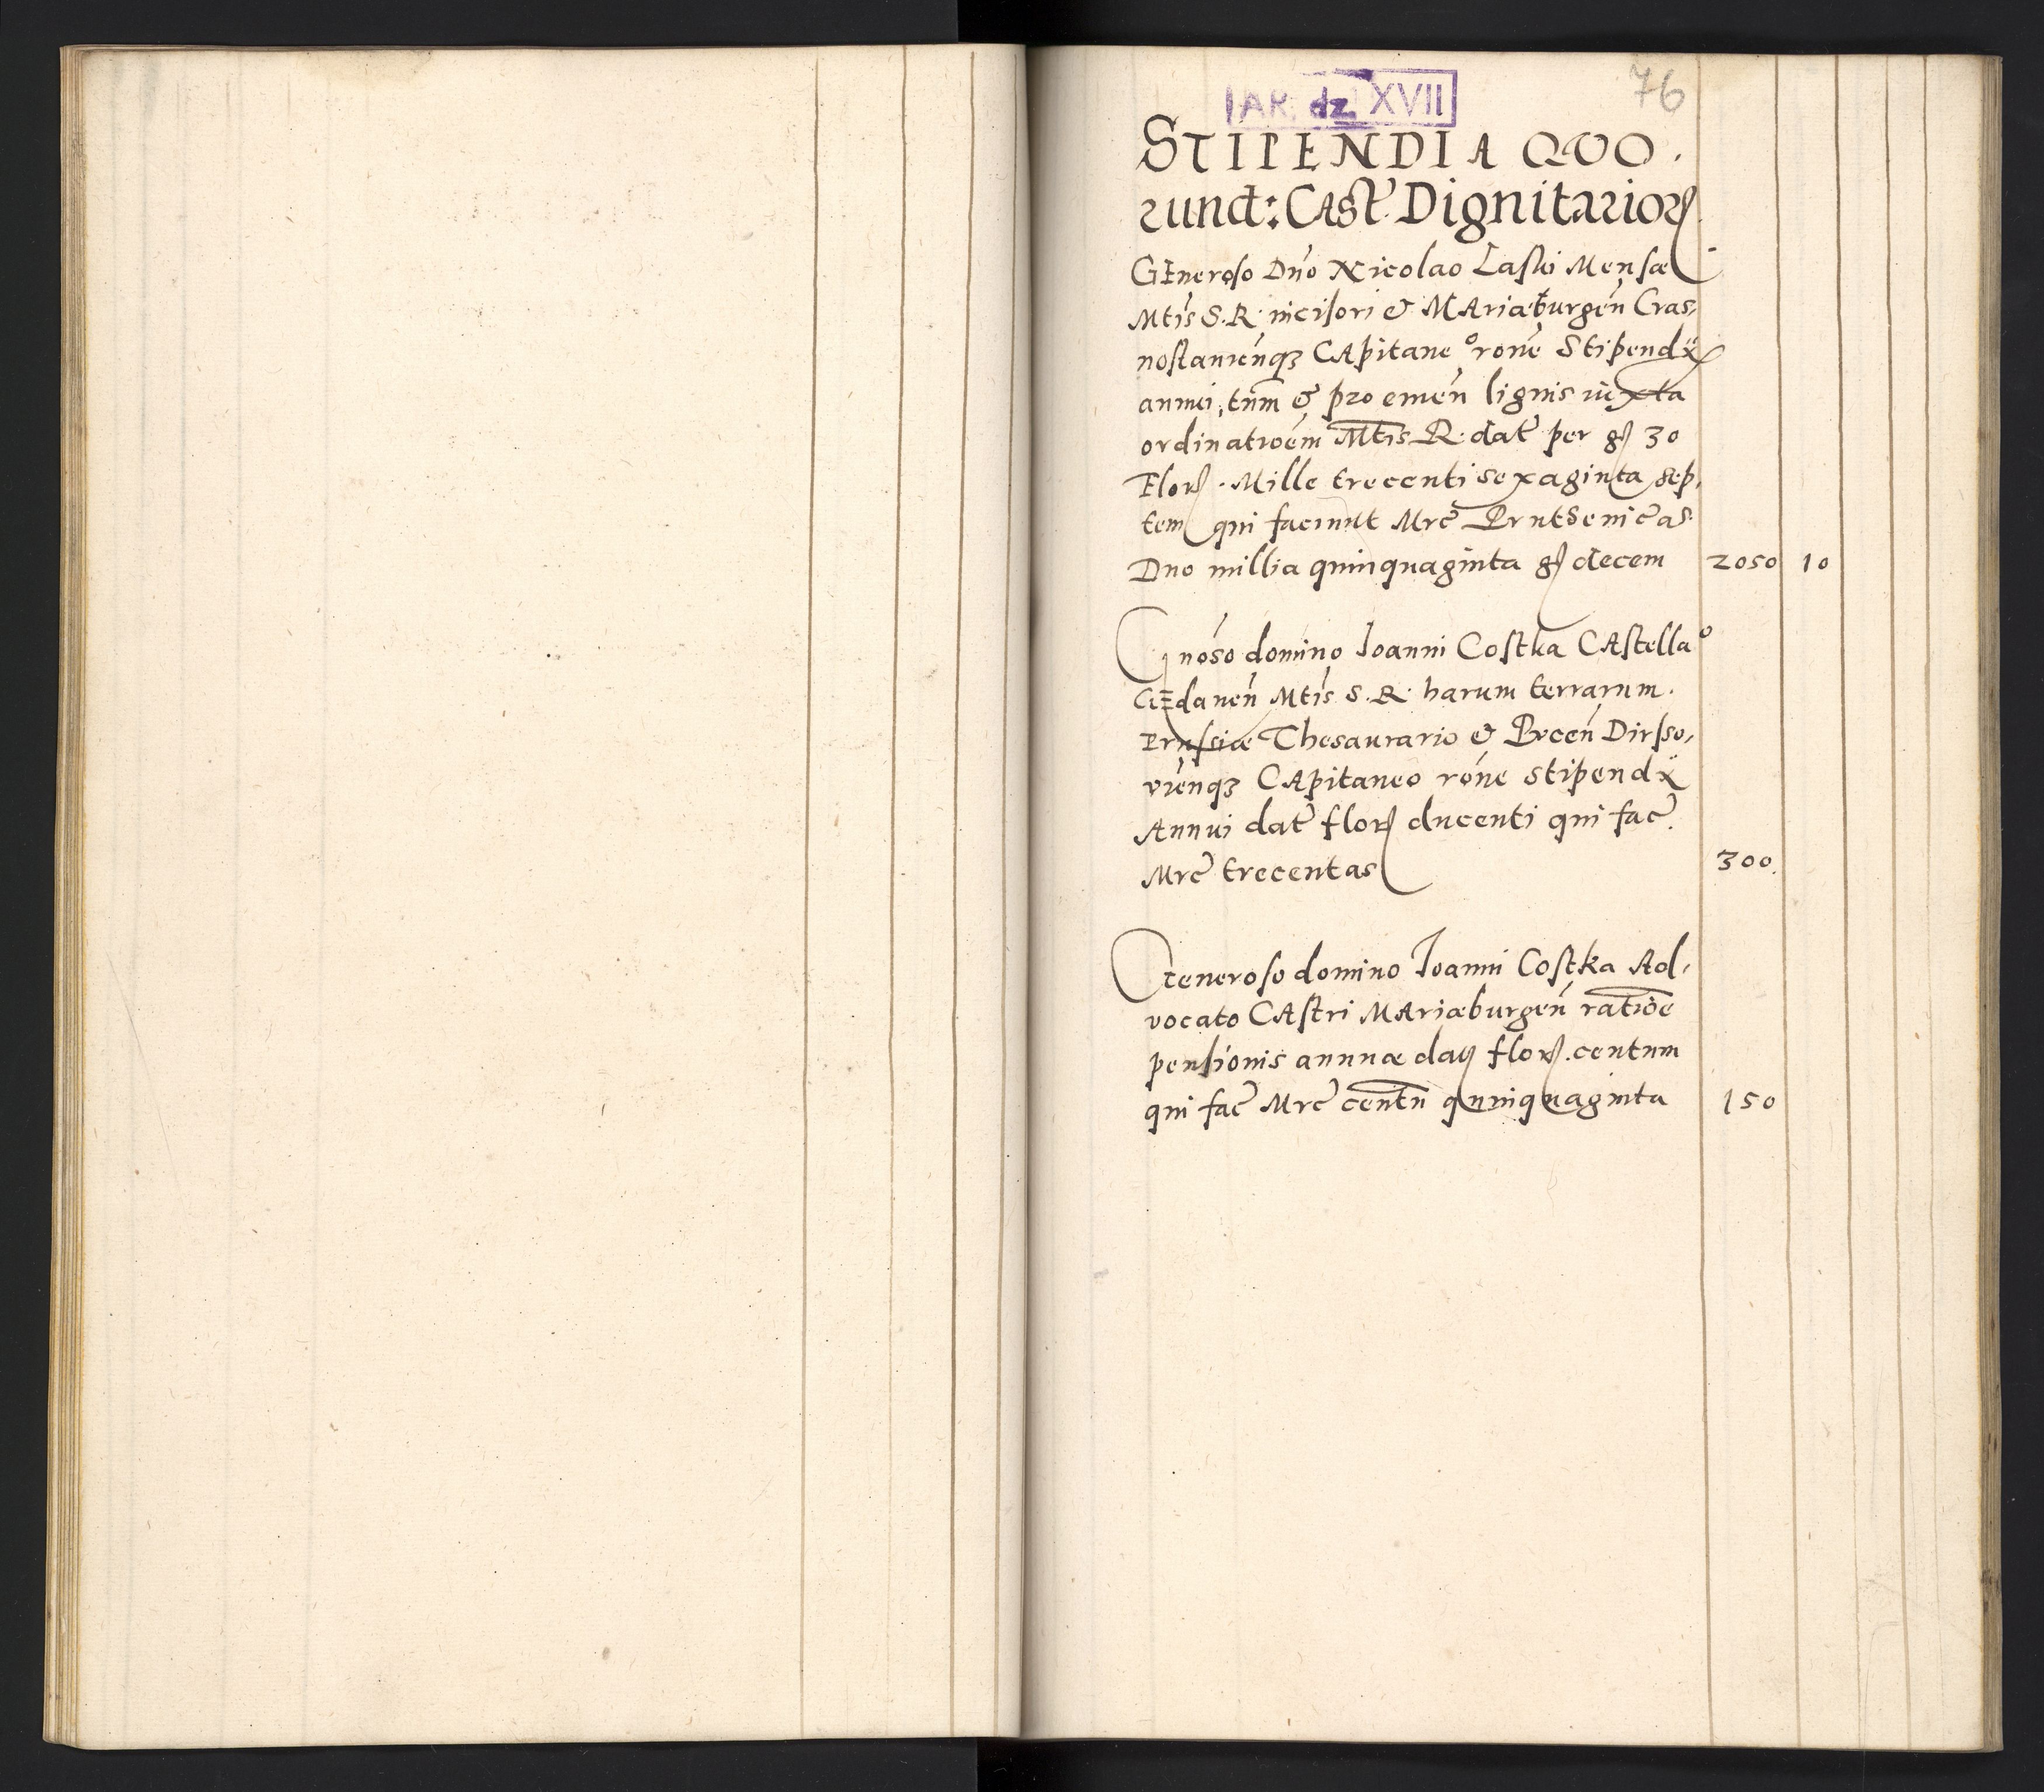 76
AR. dz. XVII
STIPENDIA QVO.
rund: CASt. Dignitarior
GEneroso Dño Nicolao Laski Mensæ
Mtis S. R. incisori & MAriæburgeñ Cras,
nostauieñqз CApitaneo roñe Stipendij
annui, tum & pro emeñ lignis iuxta
ordinatioem Mtis R. dat per gs 30
Flor. Mille trecenti sexaginta sep,
tem qui faciunt Mrc PrutSenicas
Duo millia quinquaginta gs decem 2050 10
Gnoso domino Ioanni Costka CAstella°
GEdaneñ Mtis S. R. harum terrarum.
Prussiæ Thesaurario & Pvceñ Dirsso,
vieñqз CApitaneo roñe stipendij
Annui dat flor ducenti qui fac.
Mrc trecentas 300.
Generoso domino Ioanni Costka Ad,
vocato CAstri MAriæburgeñ ratioe
pensionis annuæ daq flor. centum
qui fac Mrc centũ quinquaginta 150